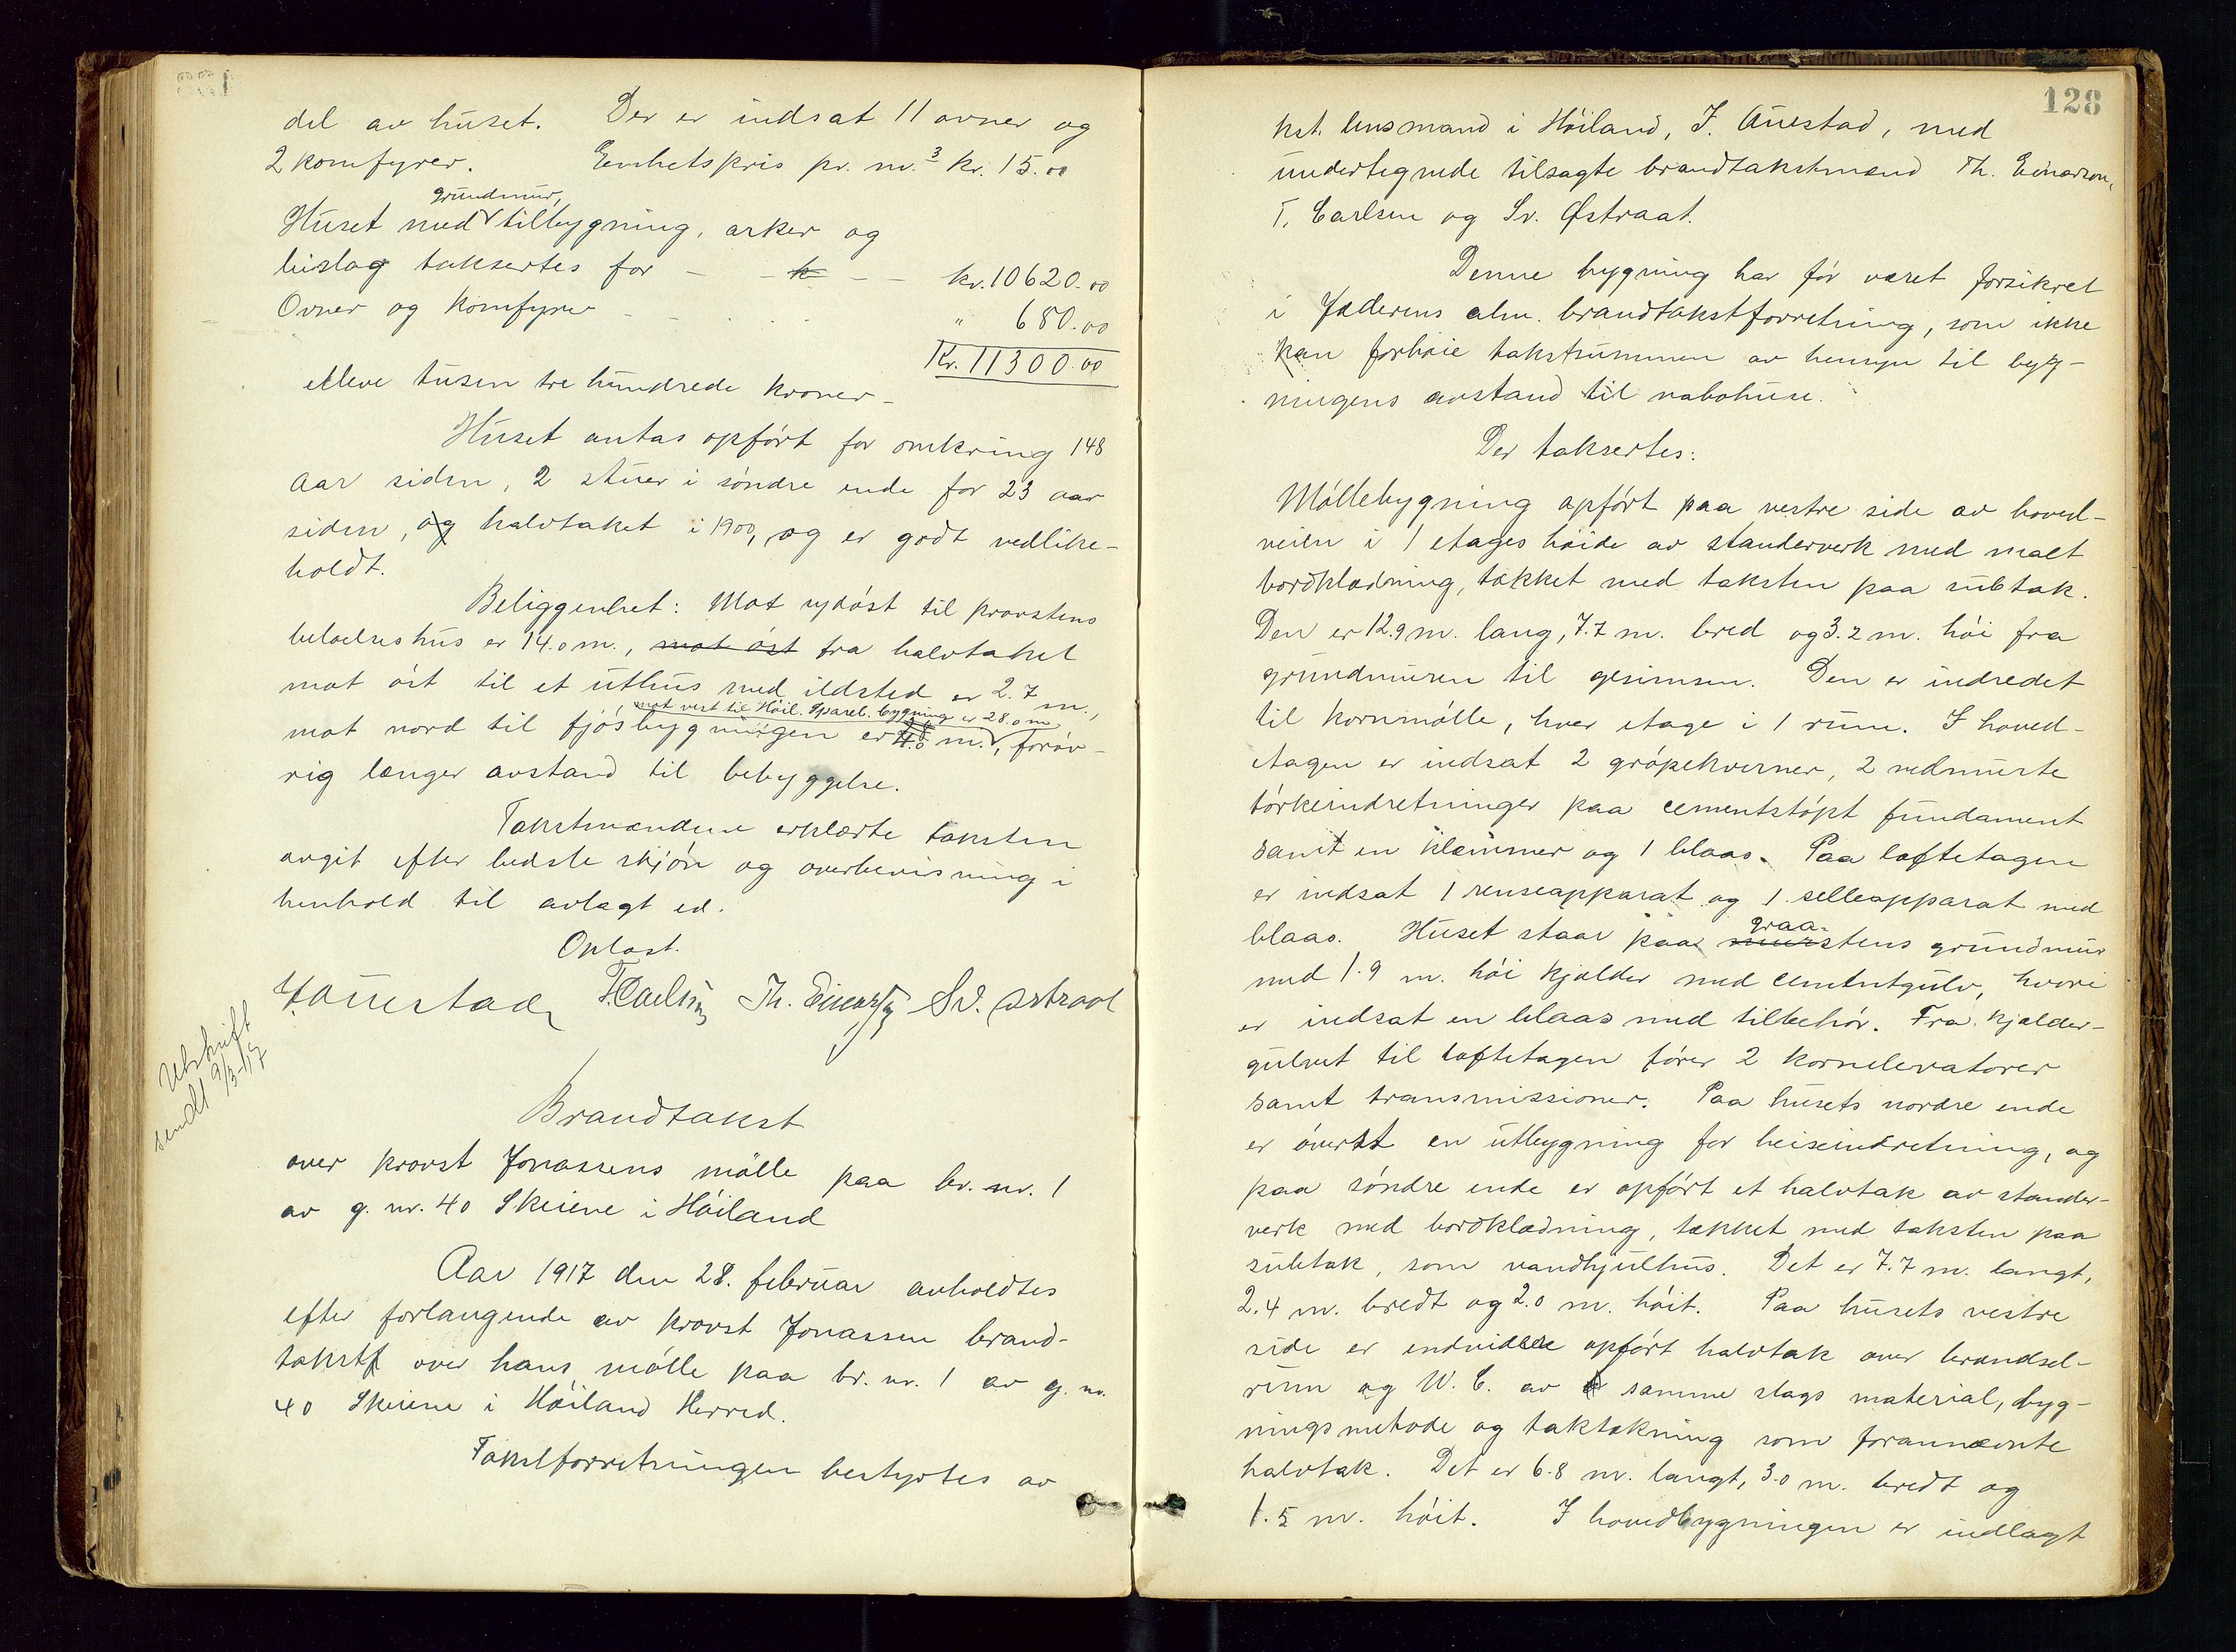 del av huset. Der er indsat 11 ovner og
2 komfyrer. Enhetspris pr. m.³ kr. 15.00
grundmur,
Huset med tilbygning, arker og
bislag taksertes for - - k - - kr. 10620.00
Ovner og komfyrer - - . . " 680.00
Kr. 11300.00
elleve tusen tre hundrede kroner -
Huset antas opført for omkring 148
aar siden, 2 stuer i søndre ende for 23 aar
siden, og halvtaket i 1900, og er godt vedlike-
holdt.
Beliggenhet: Mot sydøst til provstens
beboelseshus er 14.0 m., mot øst fra halvtaket
mot øst til et uthus med ildsted er 2.7 m.,
mot vest til Høil. Spareb. bygning er 28.0 m
mot nord til fjøsbygningen er 4.0 m., forøv-
rig længer avstand til bebyggelse.
Takstmændene erklærte taksten
avgit efter bedste skjøn og overbevisning i
henhold til avlagt ed.
Oplæst.
J. Auestad T. Carlsen Th. Einarsen Sv. Østraat
Utskrift
sendt 9/3-17
Brandtakst
over provst Jonassens mølle paa br. nr. 1
av g. nr. 40 Skeiene i Høiland
Aar 1917 den 28. februar avholdtes
efter forlangende av provst Jonassen brand-
takst over hans mølle paa br. nr. 1 av g. nr.
40 Skeiene i Høiland Herred.
Takstforretningen bestyrtes av
128
kst. lensmand i Høiland, J. Auestad, med
undertegnede tilsagte brandtakstmænd Th. Einarsen,
T. Carlsen og Sv. Østraat.
Denne bygning har før været forsikret
i Jæderens alm. brandtakstforretning, som ikke
kan forhøie takstsummen av hensyn til byg-
ningens avstand til nabohuse.
Der taksertes:
Møllebygning opført paa vestre side av hoved-
veien i 1 etages høide av standerverk med malt
bordklædning, tækket med taksten paa subtak.
Den er 12.9 m. lang, 7.7 m. bred og 3.2 m. høi fra
grundmuren til gesimsen. Den er indredet
til kornmølle, hver etage i 1 rum. I hoved-
etagen er indsat 2 grøpekverner, 2 nedmurte
tørkeindretninger paa cementstøpt fundament
samt en klemmer og 1 blaas. Paa loftetagen
er indsat 1 renseapparat og 1 selleapparat med
graa-
blaas. Huset staar paa murstens grundmur
med 1.9 m. høi kjælder med cementgulv, hvori
er indsat en blaas med tilbehør. Fra kjælder-
gulvet til loftetagen fører 2 kornelevatorer
samt transmissioner. Paa husets nordre ende
er øverst en utbygning for heiseindretning, og
paa søndre ende er opført et halvtak av stander-
verk med bordklædning, tækket med taksten paa
subtak, som vandhjulhus. Det er 7.7 m. langt,
2.4 m. bredt og 2.0 m. høit. Paa husets vestre
side er endvidere opført halvtak over brændsel-
rum og W. C. av samme slags material, byg-
ningsmetode og taktækning som forannævnte
halvtak. Det er 6.8 m. langt, 3.0 m. bredt og
1.5 m. høit. I hovedbygningen er indlagt